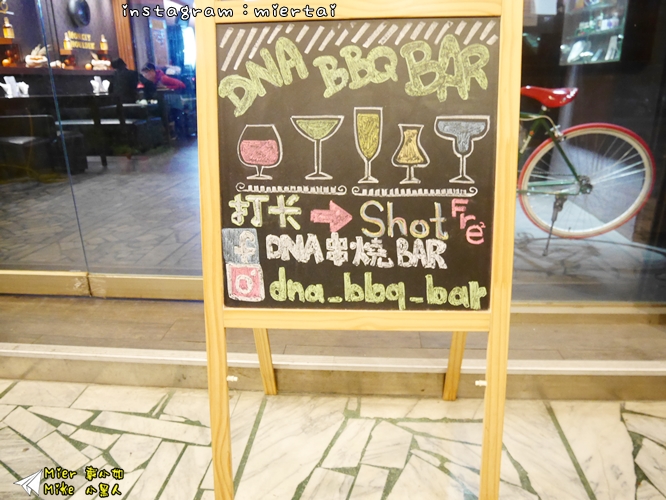 instagram：miertai
DNA BBQ BAR
打卡 Shot Fre
DNA串燒 BAR
dna_bbq_bar
Mier
Mike